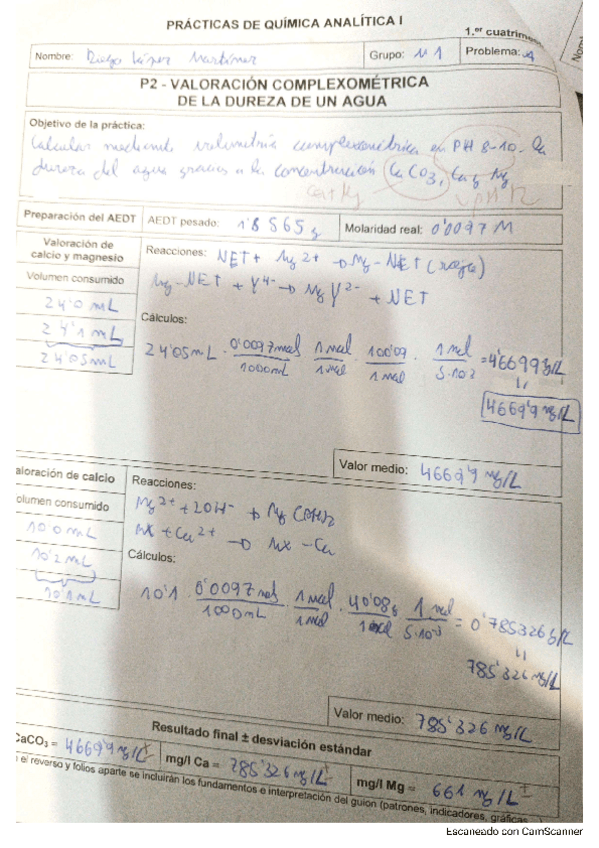 PRÁCTICAS DE QUÍMICA ANALÍTICA I
1.er cuatrim
Nombre: Diego López Martínez Grupo: M1 Problema: 4
P2 - VALORACIÓN COMPLEXOMÉTRICA
DE LA DUREZA DE UN AGUA
Objetivo de la práctica:
Calcular mediante volumetría complexométrica en PH 8-10 la
dureza del agua gracias a la concentración CaCO3, Ca y Mg
Ca+Mg pH 12
Preparación del AEDT AEDT pesado: 1'8565g Molaridad real: 0'0097 M
Valoración de
calcio y magnesio
Volumen consumido
24'0 mL
24'1 mL
24'05 mL
Reacciones: NET + Mg2+ → Mg-NET (rojo)
Mg-NET + Y4- → MgY2- + NET
Cálculos:
24'05mL · 0'0097mol/1000mL · 1mol/1mol · 100'09/1mol · 1mol/5·10-3 = 4'6699g/L
4669'9 mg/L
Valor medio: 4669'9 mg/L
aloración de calcio
olumen consumido
10'0 mL
10'2 mL
10'1 mL
Reacciones:
Mg2+ + 2OH- → Mg(OH)2
MX + Ca2+ → MX-Ca
Cálculos:
10'1 0'0097mol/1000mL · 1mol/1mol · 40'08g/1mol · 1mol/5·10-3 = 0'785326g/L
785'326 mg/L
Valor medio: 785'326 mg/L
Resultado final ± desviación estándar
CaCO3 = 4669'9 mg/L± mg/l Ca = 785'326 mg/L± mg/l Mg = 661 mg/L±
n el reverso y folios aparte se incluirán los fundamentos e interpretación del guion (patrones, indicadores, gráficas
Escaneado con CamScanner